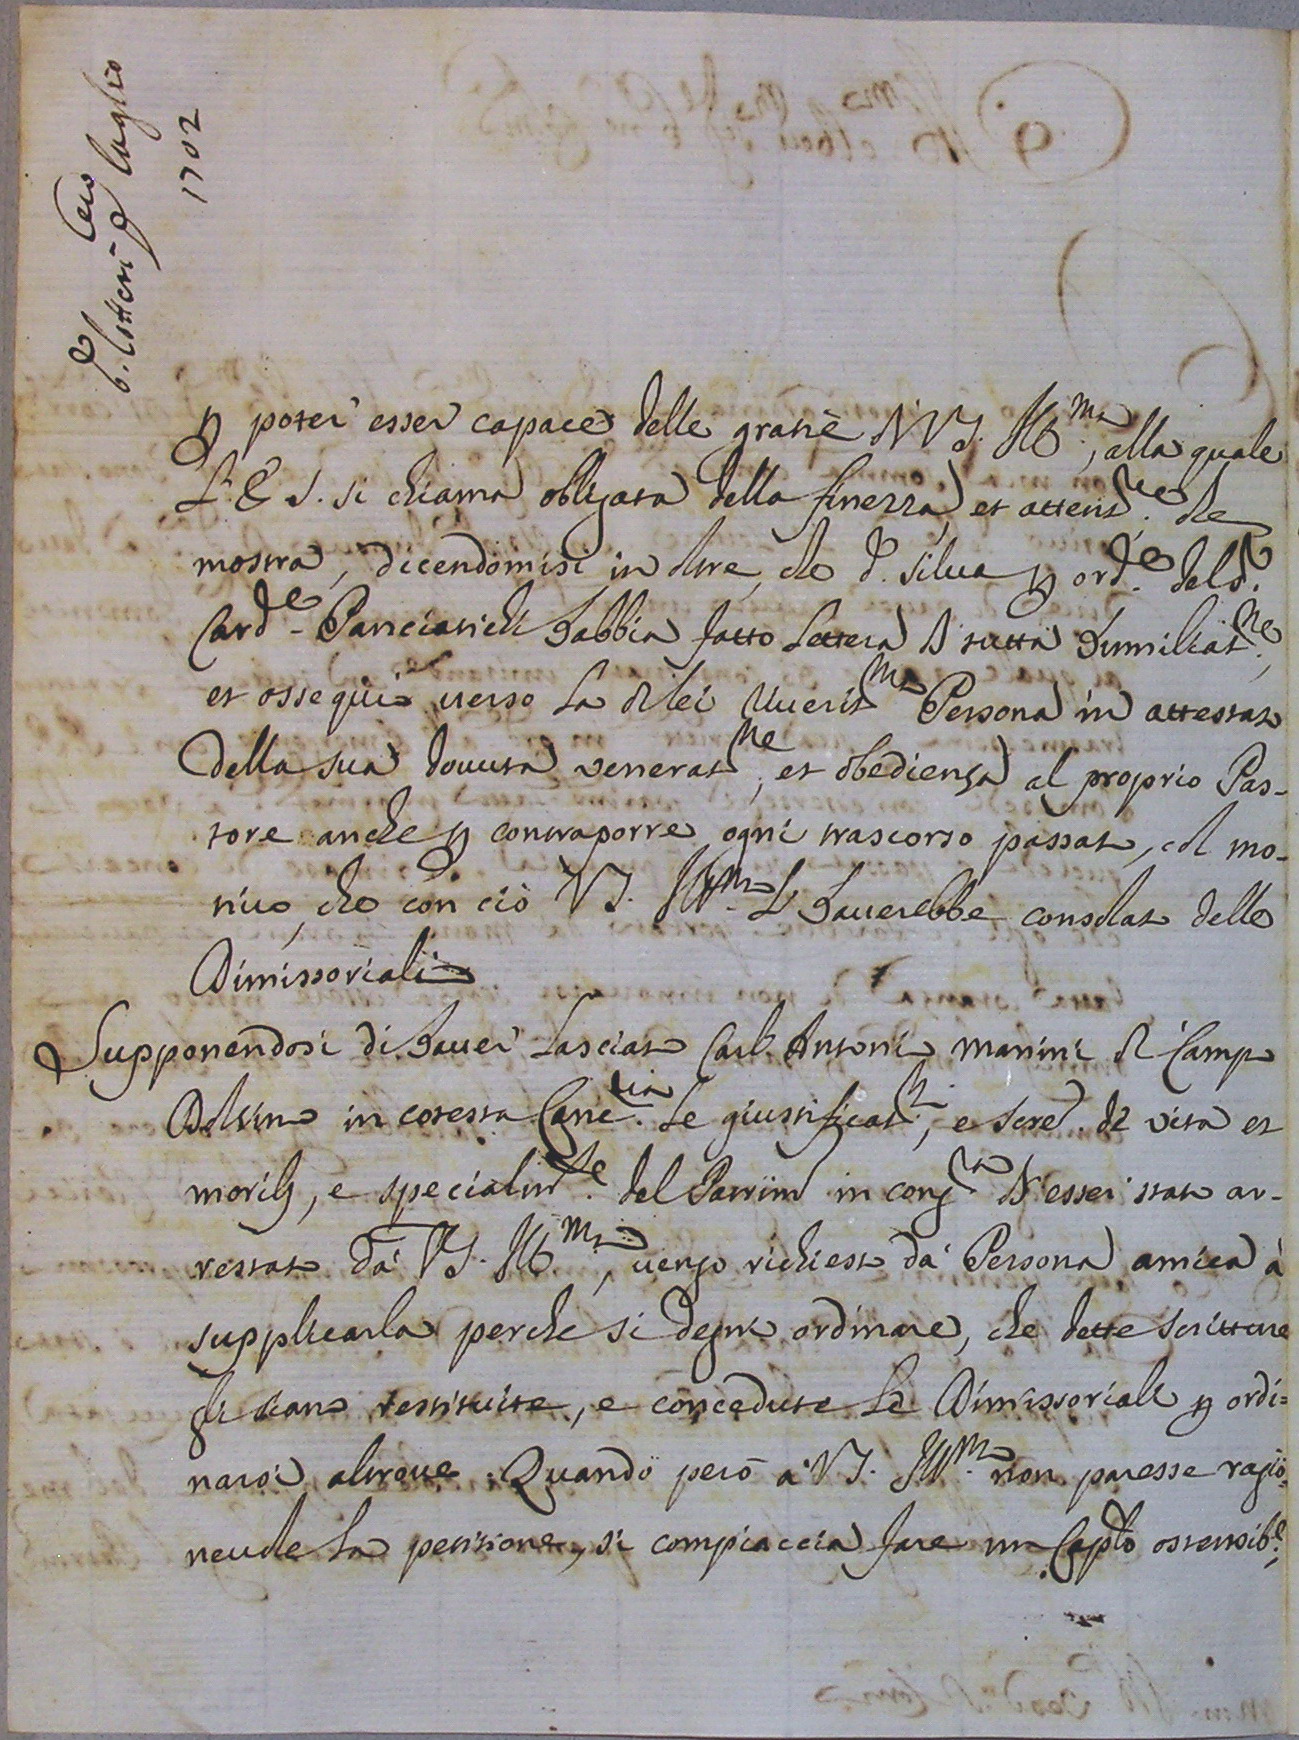 D. Lotteri Cero
6. luglio
1702
p poter esser capace delle gratie di VS. Ill.ma, alla quale
L'E. S. si chiama obligata della finezza, et attent.ne che
mostra, dicendomisi in oltre, che d. Silva p ord.e del d.o
Card.e Panciatichi habbia fatto lettera di tutta humiliat.ne,
et ossequio verso la di lei riverit.ma Persona in attestato
della sua dovuta venerat.ne, et obedienza al proprio Pas-
tore anche p contraporre ogni trascorso passato, col mo-
tivo, che con ciò VS. Ill.ma l'haverebbe consolato delle
Dimissoriali
Supponendosi di haver lasciato Carl' Antonio Manini di Campo
Dolcino in cotesta Canc.ria le giustificat.ni, e fere de vita et
morib, e specialm.te del Patrim.o in cong.ra di esser stato ar-
restato da VS. Ill.ma, vengo richiesto da Persona amica à
supplicarla perche si degni ordinare, che dette scritture
gli siano restituite, e concedute le Dimissoriali p ordi-
narsi altrove. Quando però à VS. Ill.ma non paresse ragio-
nevole la petitione, si compiaccia fare un Cap.lo ostensib.e,